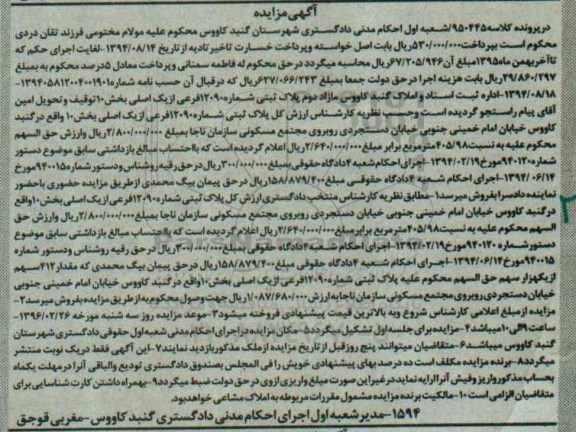 آگهی مزایده
در پرونده کلاسه ۹۵۰۴۴۵/شعبه اول احکام مدنی دادگستری شهرستان گنبد کاووس محکوم علیه مولام مختومی فرزند تقان دردی
محکوم است بپرداخت ۵۳۰/۰۰۰/۰۰۰ریال بابت اصل خواسته وپرداخت خسارت تاخیر تادیه از تاریخ ۱۳۹۴/۰۸/۱۴-لغایت اجرای حکم که
تاآخر بهمن ماه۱۳۹۵مبلغ آن۶۷/۲۰۵/۹۴۶ریال محاسبه میگردد در حق محکوم له فاطمه سمنانی وپرداخت معادل ۵درصد محکوم به بمبلغ
۲۹/۸۶۰/۲۹۷ریال بابت هزینه اجرا در حق دولت جمعا بمبلغ ۶۳۷/۰۶۶/۲۴۳ریال که در قبال آن حسب نامه شماره۱۳۹۴۰۵۸۱۲۰۰۴۰۰۱۹۰۱-
۱۳۹۴/۰۸/۱۸-اداره ثبت اسناد واملاک گنبد کاووس مازاد دوم پلاک ثبتی شماره۱۲۰۹۰فرعی از یک اصلی بخش۱۰توقیف وتحویل امین
آقای پیام راستجو گردیده است وحسب نظریه کارشناس ارزش کل پلاک ثبتی شماره۱۲۰۹۰فرعی از یک اصلی بخش۱۰واقع در گنبد
کاووس خیابان امام خمینی جنوبی خیابان دستجردی روبروی مجتمع مسکونی سازمان ناجا بمبلغ ۲/۸۰۰/۰۰۰/۰۰۰ریال وارزش حق السهم
محکوم علیه به نسبت۴۰۵/۹۸مترمربع برابر مبلغ ۲/۶۴۰/۰۰۰/۰۰۰ریال اعلام گردیده است که بااحتساب مبالغ بازداشتی سابق موضوع دستور
شماره۹۴۰۱۲۰مورخ۱۳۹۴/۰۲/۱۹-اجرای احکام شعبه ۴دادگاه حقوقی بمبلغ۳۰۰/۰۰۰/۰۰۰ریال در حق رقیه روشناس ودستور شماره۹۴۰۰۱۵مورخ
۱۳۹۴/۰۶/۱۴-اجرای احکام شعبه ۴دادگاه حقوقی مبلغ۱۵۸/۸۷۹/۴۰۰ریال در حق پیمان بیگ محمدی از طریق مزایده حضوری باحضور
نماینده دادسرا بفروش میرسد۱-مطابق نظریه کارشناس منتخب دادگستری ارزش کل پلاک ثبتی شماره۱۲۰۹۰فرعی از یک اصلی بخش۱۰واقع
در گنبد کاووس خیابان امام خمینی جنوبی خیابان دستجردی روبروی مجتمع مسکونی سازمان ناجا بمبلغ۲/۸۰۰/۰۰۰/۰۰۰ریال وارزش حق
السهم محکوم علیه به نسبت۴۰۵/۹۸مترمربع برابر مبلغ۲/۶۴۰/۰۰۰/۰۰۰ریال اعلام گردیده است که بااحتساب مبالغ بازداشتی سابق موضوع
دستور شماره۹۴۰۱۲۰مورخ۱۳۹۴/۰۲/۱۹-اجرای احکام شعبه۴دادگاه حقوقی بمبلغ۳۰۰/۰۰۰/۰۰۰ریال در حق رقیه روشناس ودستور شماره
۹۴۰۰۱۵مورخ۱۳۹۴/۰۶/۱۴-اجرای احکام شعبه ۴دادگاه حقوقی مبلغ۱۵۸/۸۷۹/۴۰۰ریال در حق پیمان بیگ محمدی که مقدار۴۱۲سهم
از یکهزار سهم حق السهم محکوم علیه پلاک ثبتی شماره۱۲۰۹۰فرعی از یک اصلی بخش۱۰واقع در گنبد کاووس خیابان امام خمینی جنوبی
خیابان دستجردی روبروی مجتمع مسکونی سازمان ناجا به ارزش ۱/۰۸۷/۶۸۰/۰۰۰ریال جهت وصول محکوم به از طریق مزایده بفروش میرسد۲-
مزایده از مبلغ اعلامی کارشناس شروع وبه بالاترین قیمت پیشنهادی فروخته میشود۳-موعد مزایده روز سه شنبه مورخه ۱۳۹۶/۰۲/۲۶-
ساعت۹الی۱۰میباشد۴-مزایده برای جلسه اول تشکیل میگردد۵-مکان مزایده در اجرای احکام مدنی شعبه اول حقوقی دادگستری شهرستان
گنبد کاووس میباشد۶-متقاضیان میتوانند پنج روز قبل از تاریخ مزایده از ملک مذکور بازدید نمایند۷-این آگهی فقط در یک نوبت منتشر
میگردد۸-برنده مزایده مکلف است ده درصد بهای پیشنهادی خویش را فی المجلس بصندوق دادگستری تودیع والباقی آنرا در مهلت یکماه
بحساب مذکور واریز وفیش آنرا ارایه نماید در غیر این صورت مبلغ واریزی از وی در حق دولت ضبط میگردد۹-بهمراه داشتن کارت شناسایی برای
متقاضیان الزامی است۱۰-مالکیت برنده مزایده مشمول مقررات مربوطه به املاک مشاعی خواهد بود.
۱۵۹۴-مدیر شعبه اول اجرای احکام مدنی دادگستری گنبد کاووس-مغربی قوجق